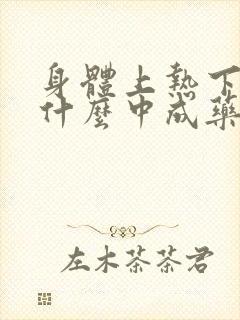 身體上熱下
什麼中成藥
左木茶茶君